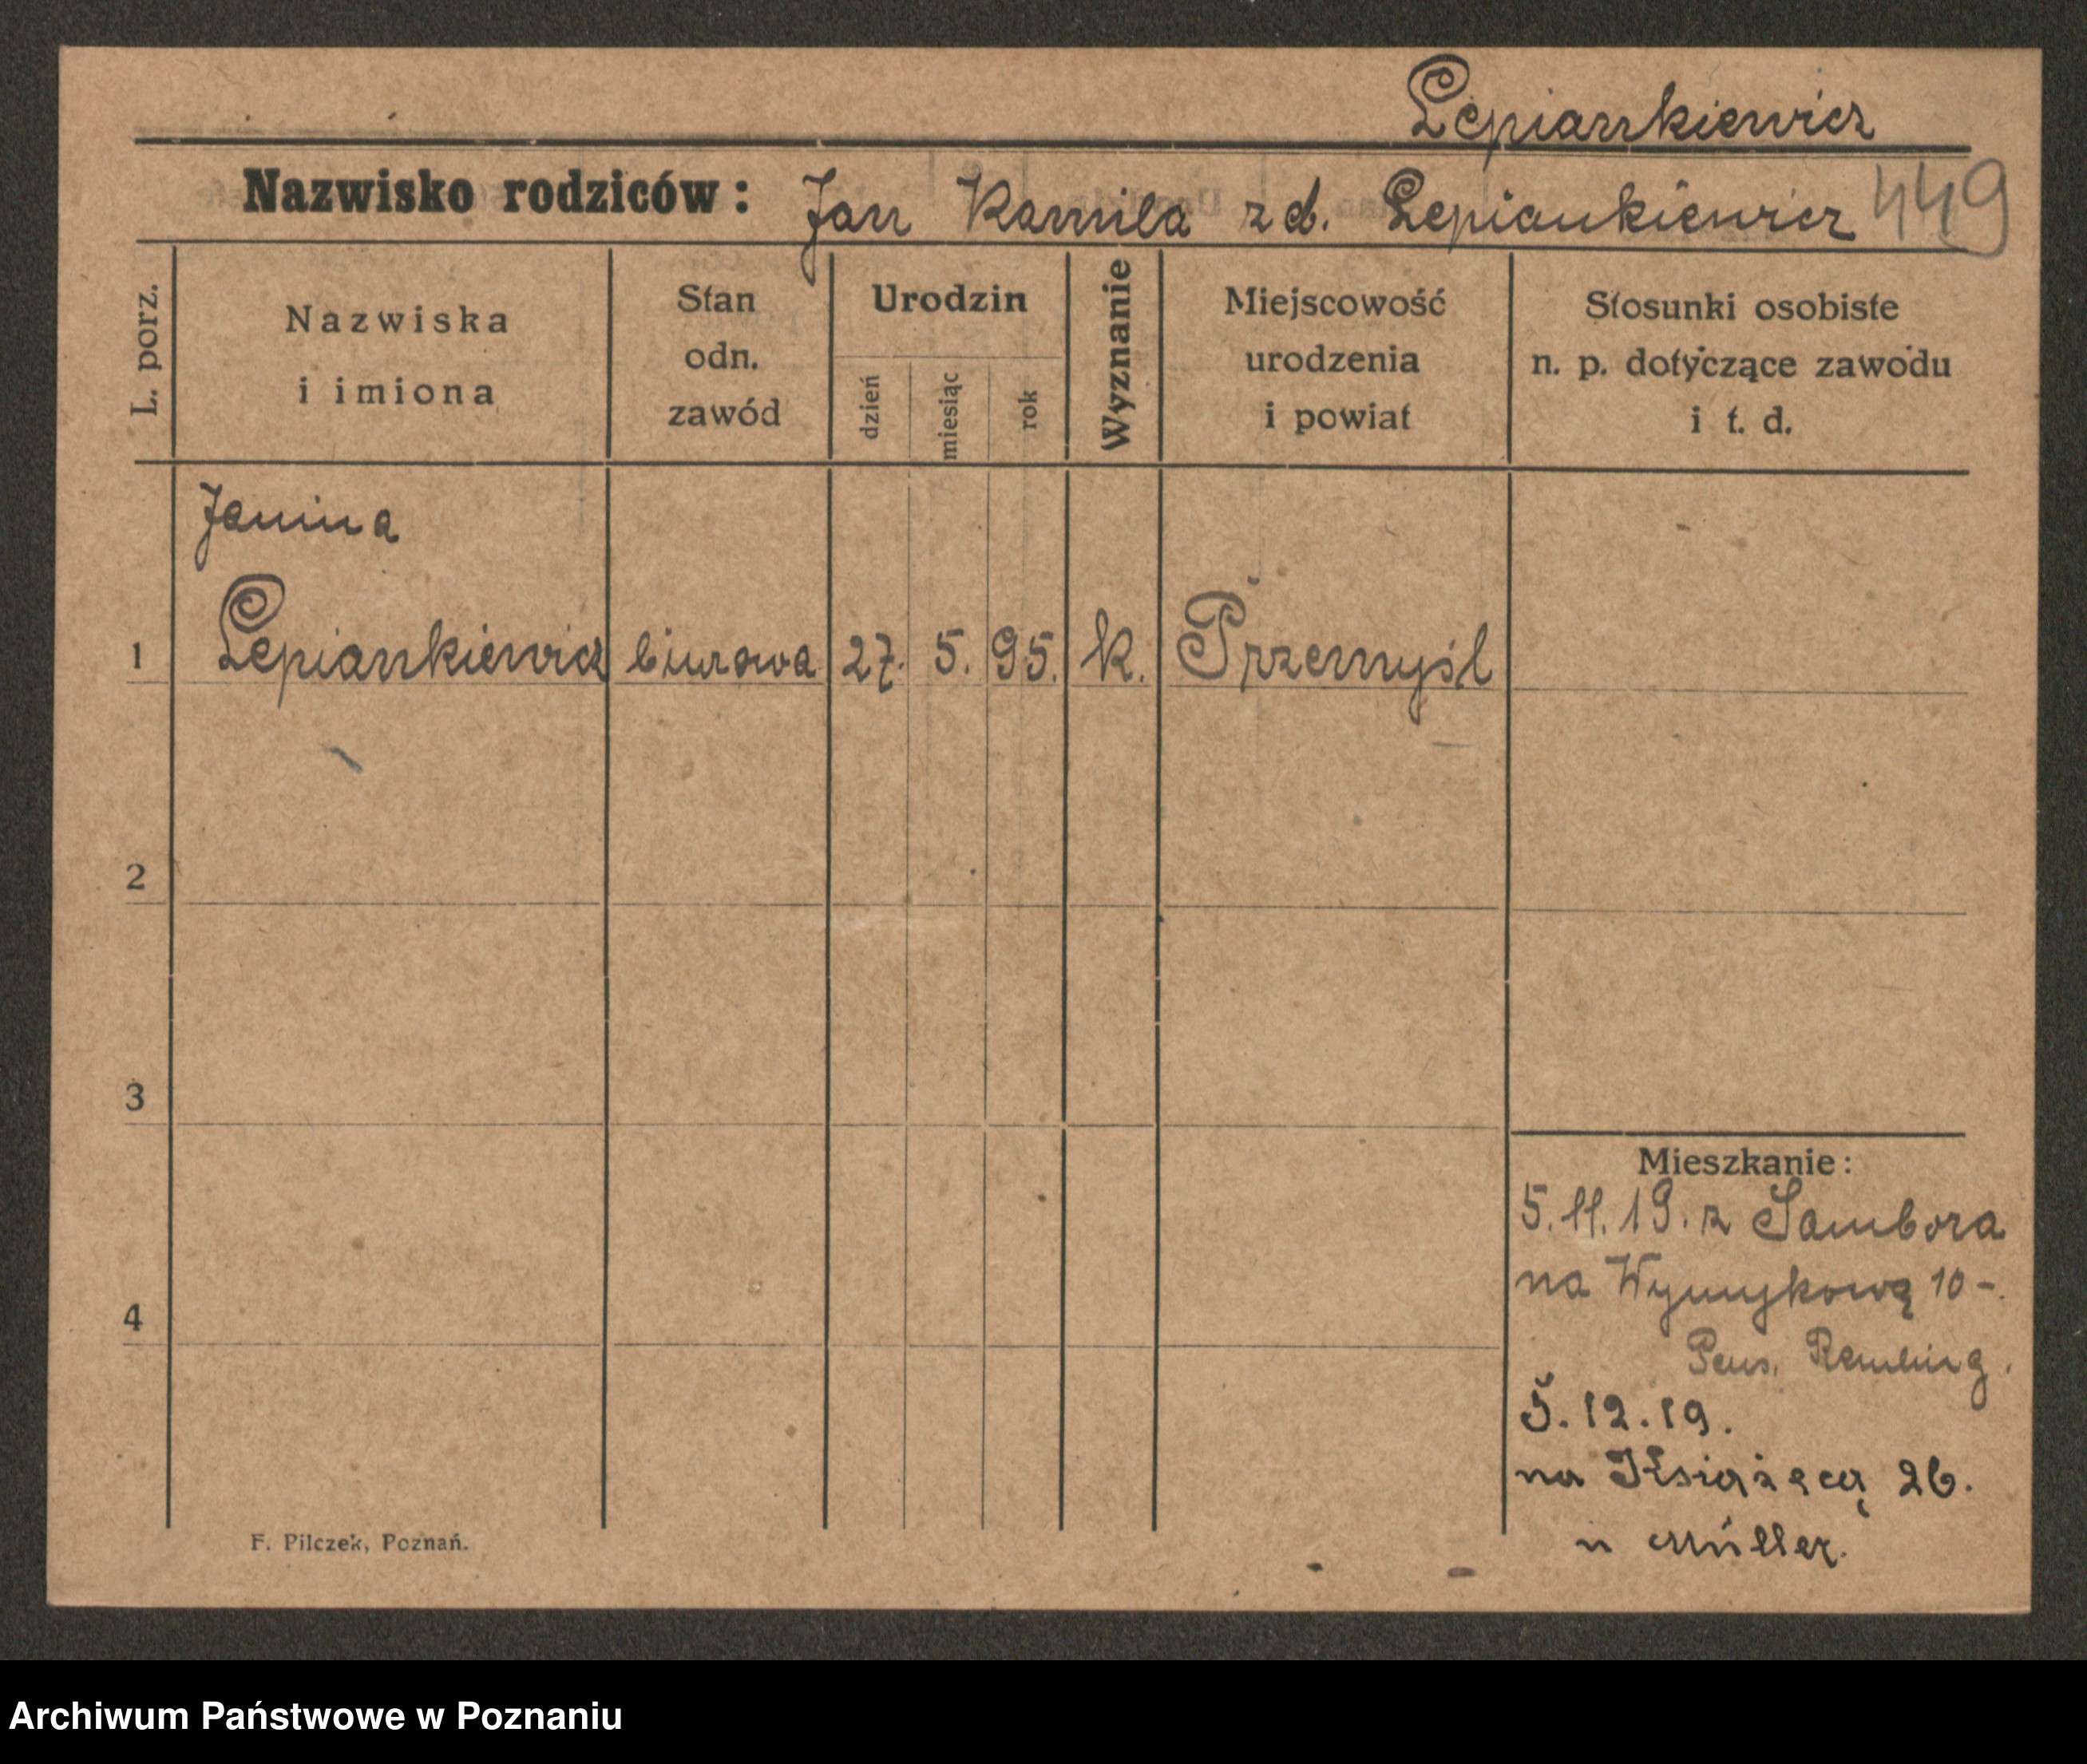 Lepiankiewicz
Nazwisko rodziców: Jan Kamila zd. Lepiankiewicz 449
L. porz.
Nazwiska
i imiona
Stan
odn.
zawód
Urodzin
dzień
miesiąc
rok
Wyznanie
Miejscowość
urodzenia
i powiat
Stosunki osobiste
n. p. dotyczące zawodu
i t. d.
Janina
1 Lepiankiewicz biurowa 27. 5. 95. k. Przemyśl
2
3
4
Mieszkanie:
5.11.19. z Sambora
na Wymykową 10-.
Pens.
5.12.19.
na Książęcą 26.
u Müller.
F. Pilczek, Poznań.
Archiwum Państwowe w Poznaniu